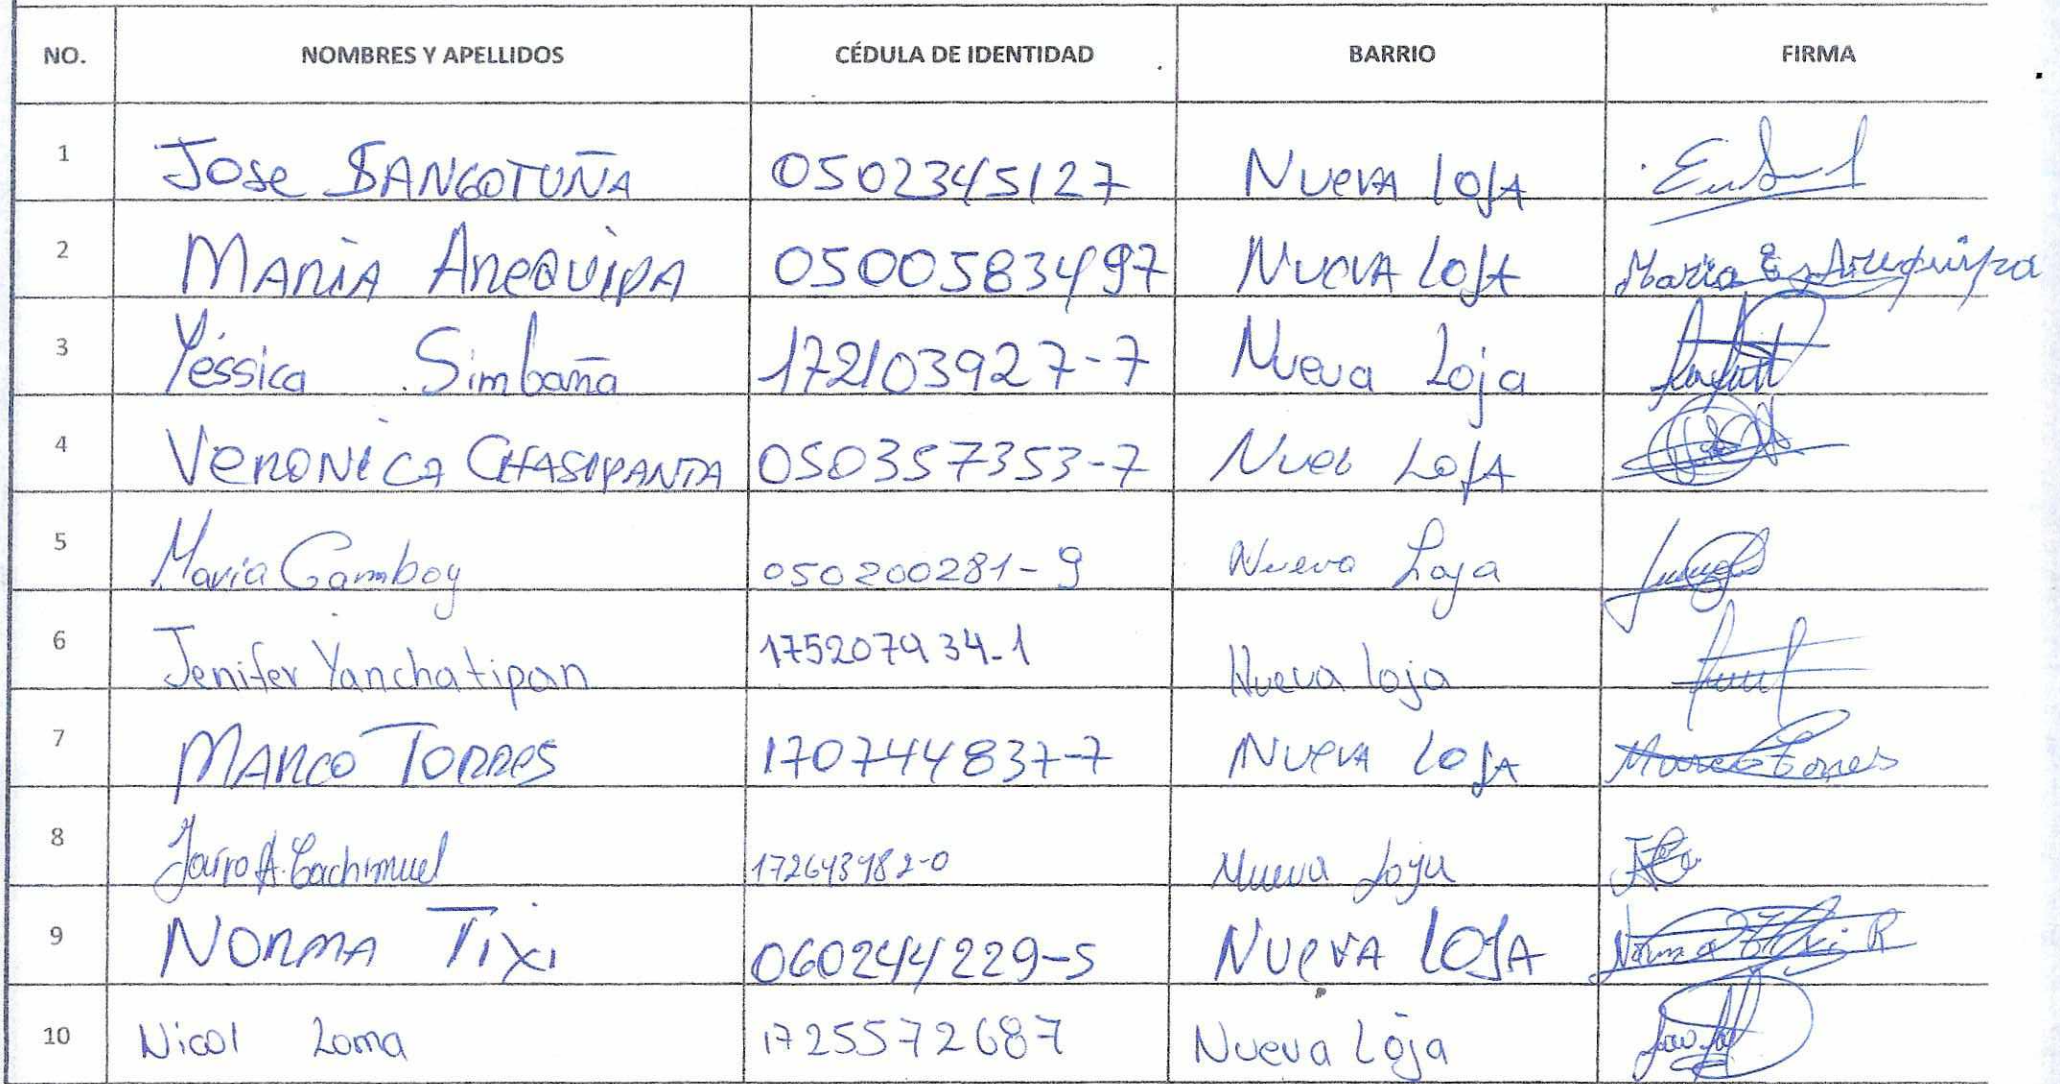 NO. NOMBRES Y APELLIDOS CÉDULA DE IDENTIDAD BARRIO FIRMA
1 Jose SANGOTUÑA 0502345127 NUEVA LOJA
2 MARIA AREQUIPA 0500583497 NUEVA LOJA Maria E Arequipa
3 Yéssica Simbaña 172103927-7 Nueva Loja
4 VERONICA CHASIPANTA 050357353-7 LOJA
5 Maria Gamboy 050200281-9 Nueva Loja
6 Jenifer Yanchatipan 175207934-1 Nueva loja
7 MARCO TORRES 170744837-7 NUEVA LOJA Marco Torres
8 Jairo A. Cachimuel Nueva Loja
9 NORMA TIXI 060244229-5 NUEVA LOJA Norma Tixi R
10 Nicol Loma 1725572687 Nueva Loja